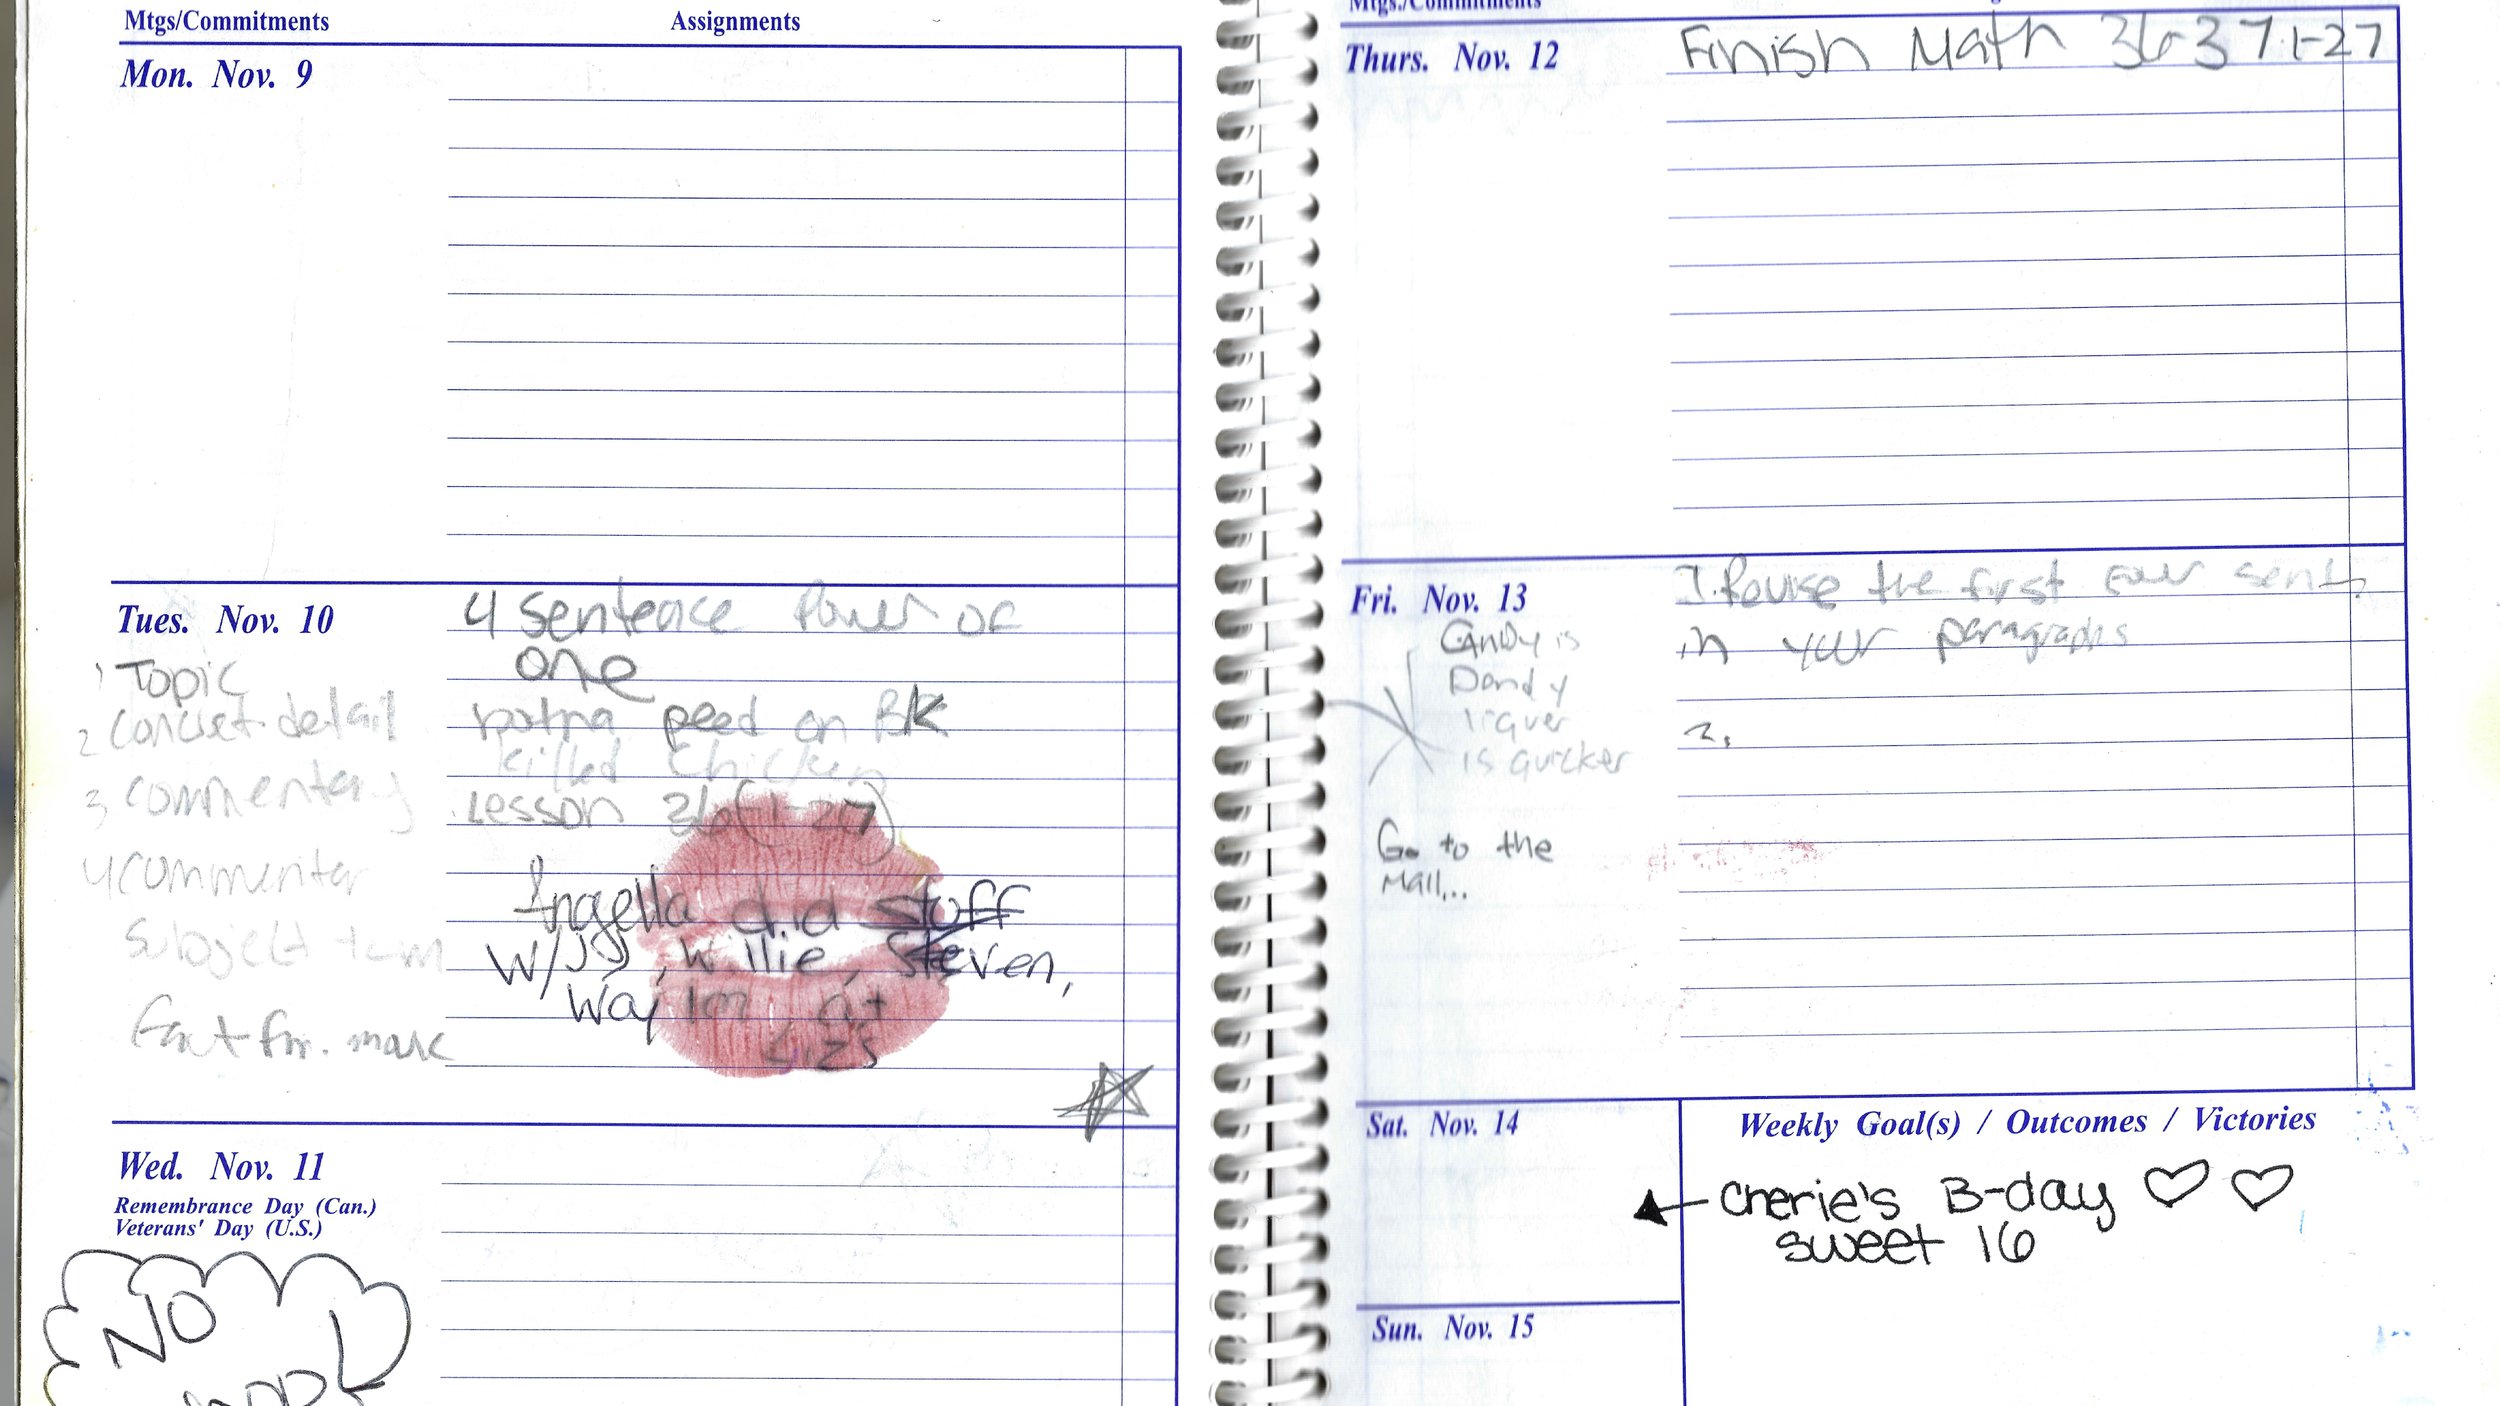 Mtgs/Commitments Assignments
Mon. Nov. 9
Tues. Nov. 10
4 Sentence Power of
one
1 Topic
2 concret. detail
3, commentary
4 commenter
Subject
mark
peed on BK
killed Chicken
Lesson 36 (1-27)
Angella did stuff
W/JJ, Willie, Steven,
at
Wed. Nov. 11
Remembrance Day (Can.)
Veterans' Day (U.S.)
NO
Mtgs./Commitments
Thurs. Nov. 12
Finish Math 36-37 1-27
Fri. Nov. 13
Candy is
Dandy
liquer
is quicker
Go to the
Mall...
1. the first four sent.
in your paragraphs
2.
Sat. Nov. 14
Sun. Nov. 15
Weekly Goal(s) / Outcomes / Victories
Cherie's B-day
sweet 16